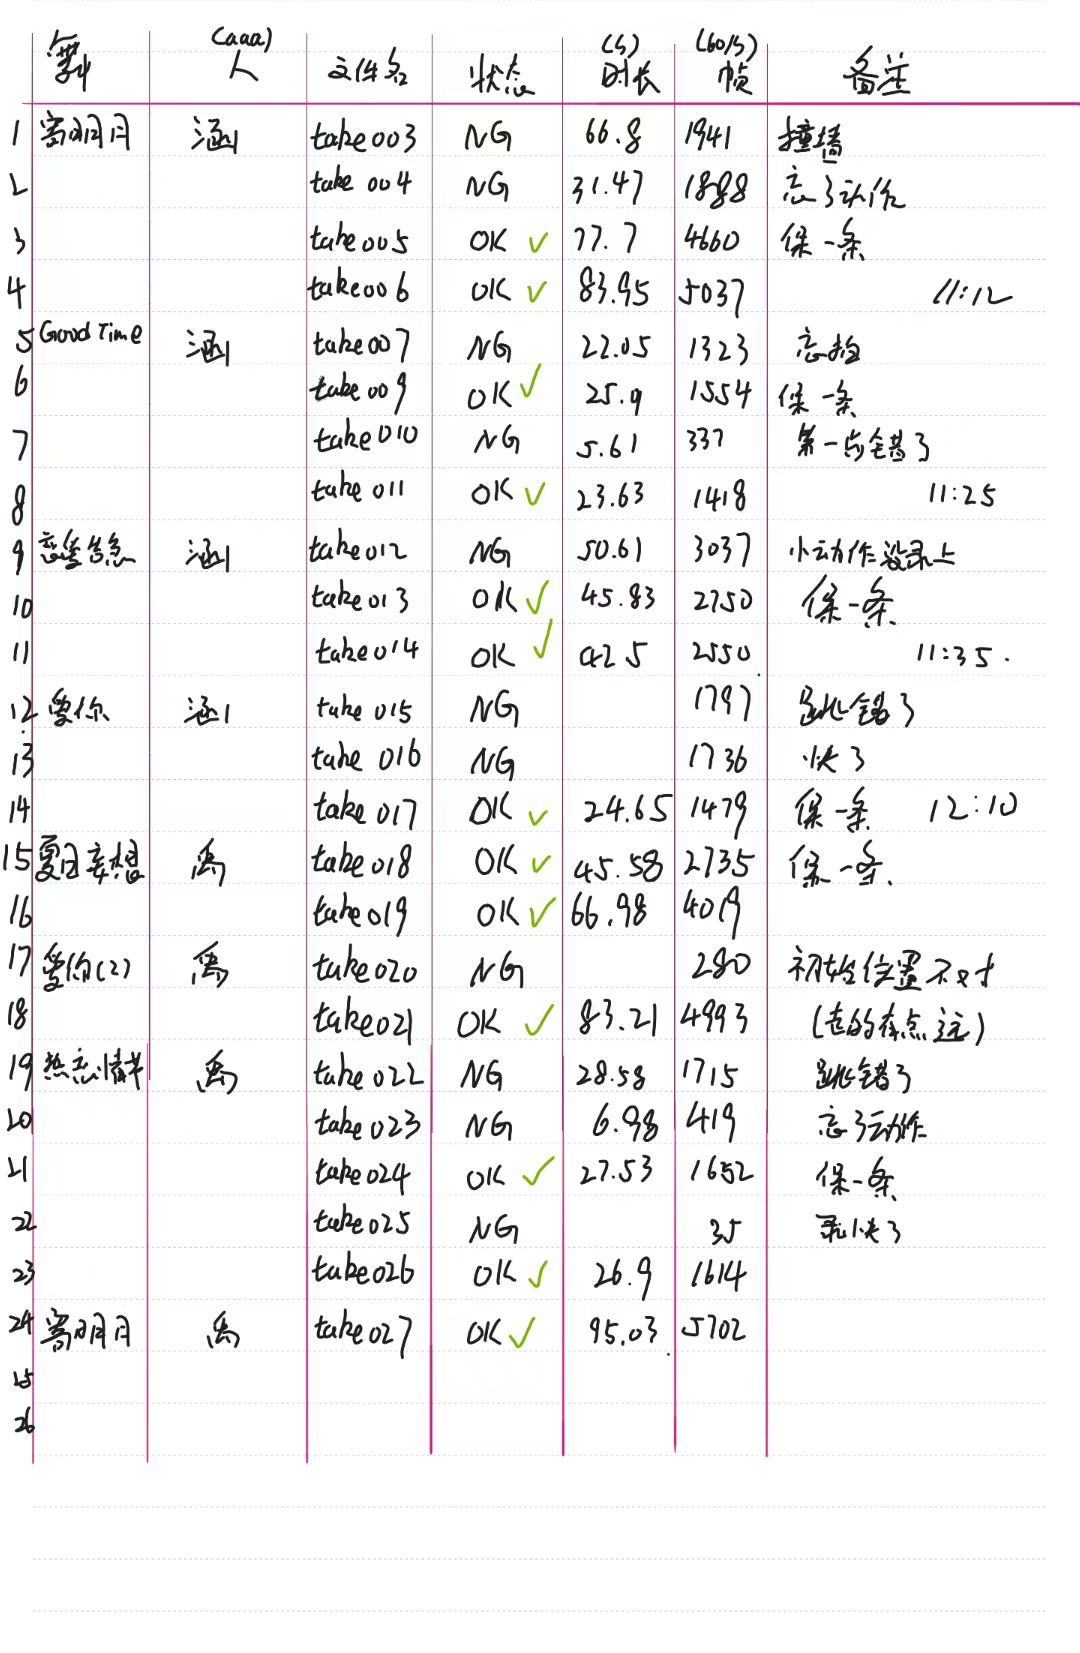 舞 (aaa) 人 文件名 状态 (s) 时长 (60/s) 帧 备注
1 寄明月 涵 take003 NG 66.8 1941 撞墙
2 take 004 NG 31.47 1888 忘了动作
3 take005 OK ✓ 77.7 4660 保一条
4 take006 OK ✓ 83.95 5037 11:12
5 Good Time 涵 take007 NG 22.05 1323 忘拍
6 take 009 OK ✓ 25.9 1554 保一条
7 take010 NG 5.61 337 第一步错了
8 take 011 OK ✓ 23.63 1418 11:25
9 恋爱告急 涵 take012 NG 50.61 3037 小动作没录上
10 take013 OK ✓ 45.83 2750 保一条
11 take014 OK ✓ 42.5 2550 11:35.
12 爱你 涵 take 015 NG 1797 跳错了
13 take 016 NG 1736 快了
14 take 017 OK ✓ 24.65 1479 保一条 12:10
15 夏日妄想 禹 take018 OK ✓ 45.58 2735 保一条.
16 take019 OK ✓ 66.98 4019
17 爱你(2) 禹 take020 NG 280 初始位置不对
18 take021 OK ✓ 83.21 4993 (走的有点远)
19 热恋情节 禹 take022 NG 28.58 1715 跳错了
20 take023 NG 6.98 419 忘了动作
21 take024 OK ✓ 27.53 1652 保一条
22 take025 NG 35 录快了
23 take026 OK ✓ 26.9 1614
24 寄明月 禹 take027 OK ✓ 95.03 5702
25
26